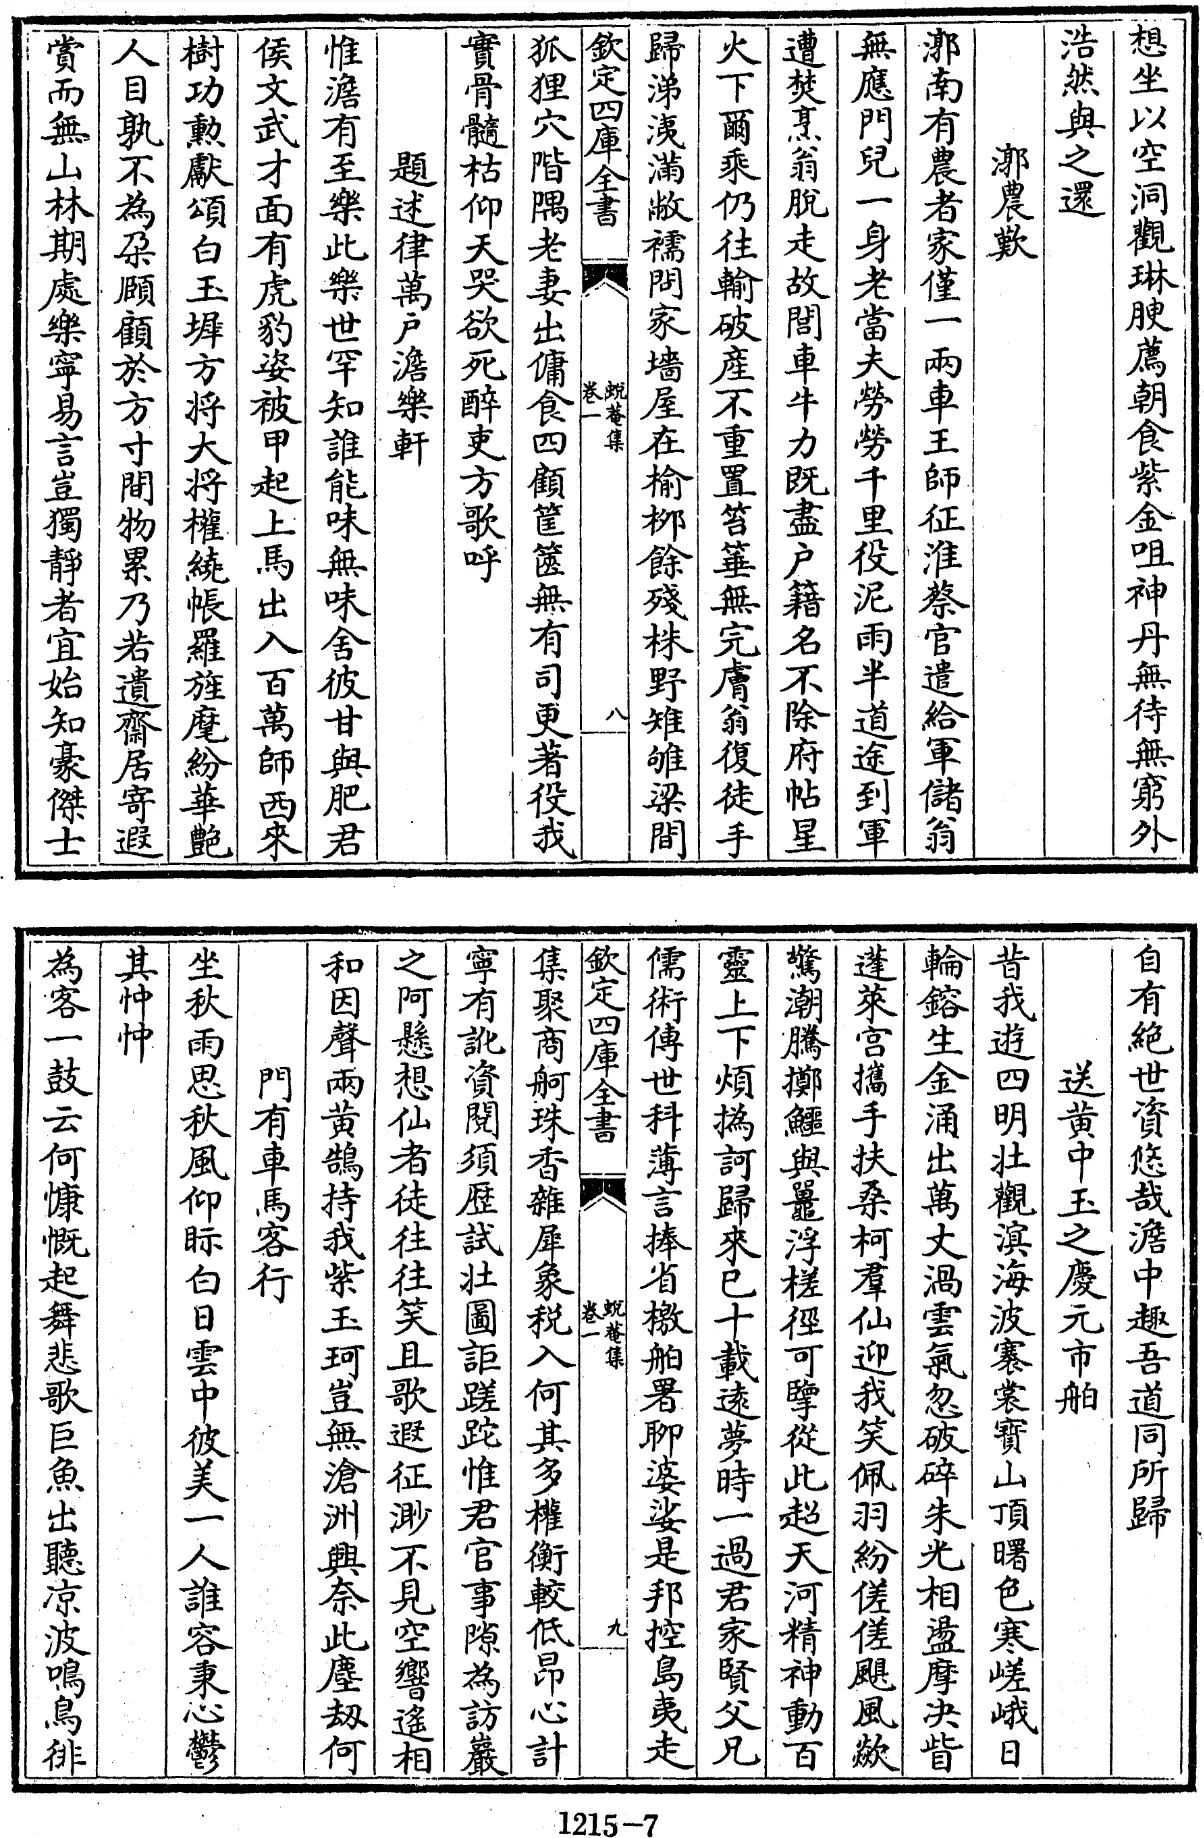 想坐以空洞觀琳腴薦朝食紫金咀神丹無待無窮外
浩然與之還
漷農歎
漷南有農者家僅一兩車王師征淮蔡官遣給軍儲翁
無應門兒一身老當夫勞勞千里役泥雨半道途到軍
遭焚烹翁脫走故閭車牛力既盡户籍名不除府帖星
火下爾乘仍往輸破產不重置笞箠無完膚翁復徒手
歸涕洟滿敝襦問家墻屋在榆桞餘殘株野雉雊梁間
欽定四庫全書
蛻菴集
卷一
八
狐狸穴階隅老妻出傭食四顧筐篋無有司更著役我
實骨髓枯仰天哭欲死醉吏方歌呼
題述律萬户澹樂軒
惟澹有至樂此樂世罕知誰能味無味舍彼甘與肥君
侯文武才面有虎豹姿被甲起上馬出入百萬師西來
樹功勲獻頌白玉墀方将大将權繞帳羅旌麾紛華艶
人目孰不為朶頤顧於方寸間物累乃若遺齋居寄遐
賞而無山林期處樂寧易言豈獨靜者宜始知豪傑士
自有絶世資悠哉澹中趣吾道同所歸
送黄中玉之慶元市舶
昔我遊四明壯觀溟海波褰裳寶山頂曙色寒嵯峨日
輪鎔生金涌出萬丈渦雲氣忽破碎朱光相盪摩决眥
蓬萊宫攜手扶桑柯羣仙迎我笑佩羽紛傞傞颶風歘
驚潮騰擲鱷與鼉浮槎徑可擥從此超天河精神動百
靈上下煩撝訶歸來已十載逺夢時一過君家賢父兄
儒術傳世科薄言捧省檄舶署聊婆娑是邦控島夷走
欽定四庫全書
蛻菴集
卷一
九
集聚商舸珠香雜犀象税入何其多權衡較低昂心計
寧有訛資閱須歴試壯圖詎蹉跎惟君官事隙為訪巖
之阿懸想仙者徒往往笑且歌遐征渺不見空響遙相
和因聲兩黄鵠持我紫玉珂豈無滄洲興奈此塵刼何
門有車馬客行
坐秋雨思秋風仰眎白日雲中彼美一人誰容秉心鬱
其忡忡
為客一鼓云何慷慨起舞悲歌巨魚出聽凉波鳴鳥徘
1215-7